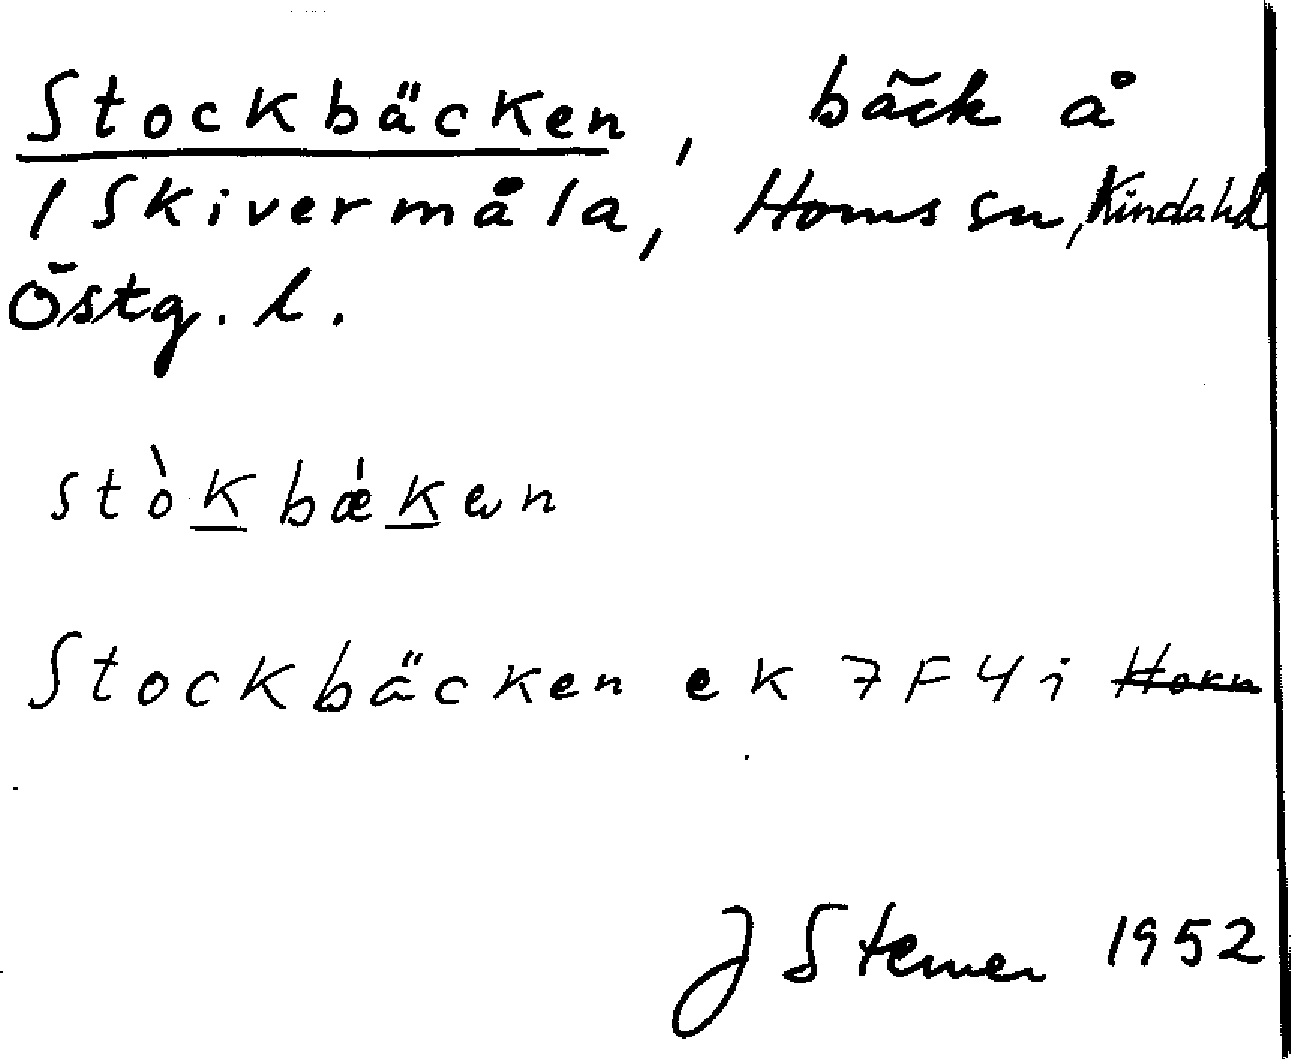 Stockbäcken, bäck å
1 Skivermåla, Horns sn, Kinda hd
Östg. l.
stòkbǽkən
Stockbäcken ek 7F4i Horn
J Sterner 1952